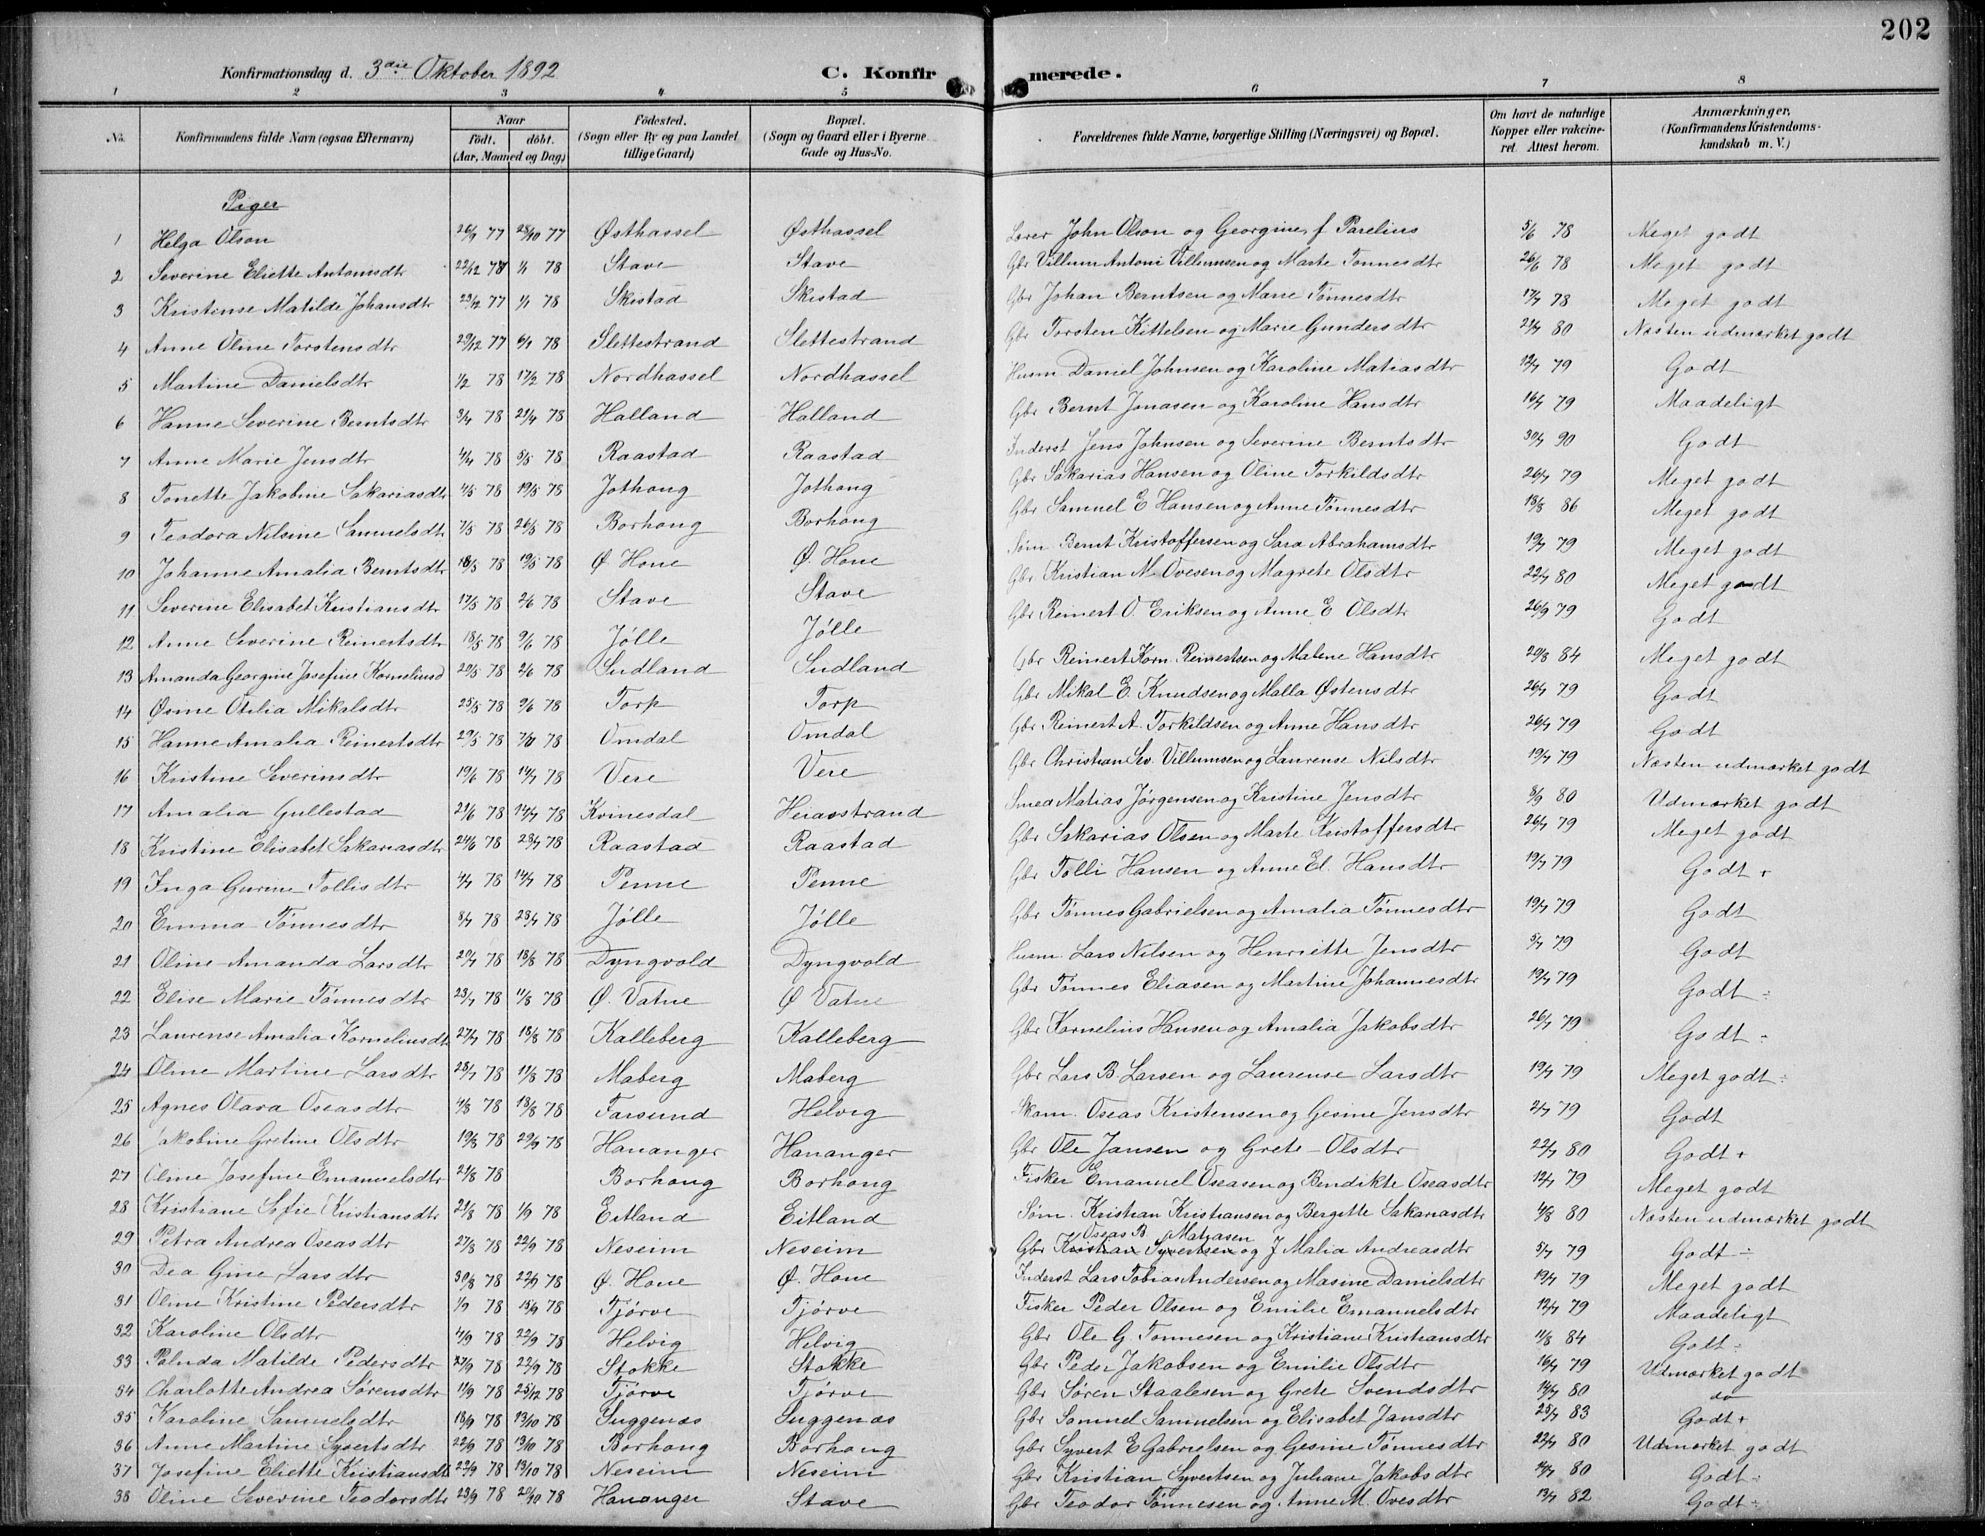 202
Konfirmationsdag d. 3die Oktober 1892 C. Konfirmerede.
1 2 3 4 5 6 7 8
No. Konfirmandens fulde Navn (ogsaa Efternavn) Naar födt. döbt. (Aar, Maaned og Dag) Födested. (Sogn eller By og paa Landet tillige Gaard) Bopæl. (Sogn og Gaard eller i Byerne Gade og Hus-No. Forældrenes fulde Navne, borgerlige Stilling (Næringsvei) og Bopæl. Om havt de naturlige Kopper eller vakcineret. Attest herom. Anmærkninger. (Konfirmandens Kristendomskundskab m. V.)
Piger
1 Helga Olson 26/9 77 28/10 77 Østhassel Østhassel Lærer John Olson og Georgine f. Parelius 5/6 78 Meget godt
2 Severine Eliette Antonisdtr 22/12 78 1/1 78 Stave Stave Gbr Villum Antoni Villumsen og Marte Tønnesdtr 26/6 78 Meget godt
3 Kristense Matilde Johansdtr 77 1/1 78 Skistad Skistad Gbr Johan Berntsen og Marie Tønnesdtr 17/7 78 Meget godt
4 Anne Oline Torstensdtr 29/12 77 6/1 78 Slettestrand Slettestrand Gbr Torsten Kittelsen og Marie Gundersdtr 80 Næsten udmærket godt
5 Martine Danielsdtr 1/2 78 17/2 78 Nordhassel Nordhassel Husm Daniel Johnsen og Karoline Matiasdtr 12/7 79 Godt
6 Hanne Severine Berntsdtr 3/4 78 21/4 78 Halland Halland Gbr Bernt Jonasen og Karoline Hansdtr 16/7 79 Maadeligt
7 Anne Marie Jensdtr 4/4 78 5/5 78 Raastad Raastad Inderst Jens Johnsen og Severine Berntsdtr 90 Godt
8 Tonette Jakobine Sakariasdtr 4/5 78 19/5 78 Jothong Jothong Gbr Sakarias Hansen og Oline Torkildsdtr 26/7 79 Meget godt
9 Teodora Nilsine Samuelsdtr 7/5 78 26/5 78 Borhong Borhong Gbr Samuel E Hansen og Anne Tønnesdtr 18/8 86 Meget godt
10 Johanne Amalia Berntsdtr 78 19/5 78 Ø. Hone Ø. Hone Søm Bernt Kristoffersen og Sara Abrahamsdtr 19/7 79 Meget godt
11 Severine Elisabet Kristiansdtr 17/5 78 2/6 78 Stave Stave Gbr Kristian M. Ovesen og Magrete Olsdtr 22/7 80 Meget godt
12 Anne Severine Reinertsdtr 18/5 78 9/6 78 Jølle Jølle Gbr Reinert O. Eriksen og Anne E Olsdtr 26/9 79 Godt
13 Amanda Georgine Josefine Korneliusd 20/5 78 2/6 78 Sudland Sudland Gbr Reinert Korn. Reinertsen og Malene Hansdtr 84 Meget godt
14 Øsme Otilia Mikalsdtr 25/5 78 9/6 78 Torp Torp Gbr Mikal E. Knudsen og Malla Østensdtr 26/7 79 Godt
15 Hanne Amalia Reinertsdtr 29/5 78 78 Omdal Omdal Gbr Reinert A. Torkildsen og Anne Hansdtr 26/7 79 Godt
16 Kristine Severinsdtr 19/6 78 14/7 78 Vere Vere Gbr Christian Sev. Villumsen og Laurense Nilsdtr 19/7 79 Næsten udmærket godt
17 Amalia Gullestad 21/6 78 14/7 78 Kvinesdal Heiavstrand Smed Matias Jørgensen og Kristine Jensdtr 8/9 80 Udmærket godt
18 Kristine Elisabet Sakariasdtr 24/6 78 28/7 78 Raastad Raastad Gbr Sakarias Olsen og Marte Kristoffersdtr 26/7 79 Meget godt
19 Inga Gurine Tollisdtr 4/7 78 14/7 78 Penne Penne Gbr Tolli Hansen og Anne El. Hansdtr 19/7 79 Godt +
20 Emma Tønnesdtr 8/7 78 28/7 78 Jølle Jølle Gbr Tønnes Gabrielsen og Amalia Tønnesdtr 19/7 79 Godt
21 Oline Amanda Larsdtr 20/7 78 18/8 78 Dyngvold Dyngvold Husm. Lars Nilsen og Henriette Jensdtr 5/7 79 Godt
22 Elise Marie Tønnesdtr 23/7 78 11/8 78 Ø. Vatne Ø Vatne Gbr Tønnes Eliasen og Martine Johannesdtr 19/7 79 Godt ÷
23 Laurense Amalia Korneliusdt 27/7 78 18/8 78 Kalleberg Kalleberg Gbr Kornelius Hansen og Amalia Jakobsdtr 26/7 79 Godt ÷
24 Oline Martine Larsdtr 28/7 78 11/8 78 Maberg Maberg Gbr Lars B. Larsen og Laurense Larsdtr 19/7 79 Meget godt ÷
25 Agnes Olava Oseasdtr 4/8 78 18/8 78 Farsund Helvig Skom. Oseas Kristensen og Gesine Jensdtr 2/7 79 Godt
26 Jakobine Gretine Olsdtr 19/8 78 29/9 78 Hananger Hananger Gbr Ole Jansen og Grete Olsdtr 22/7 80 Godt +
27 Oline Josefine Emanuelsdtr 21/8 78 Borhong Borhong Fisker Emanuel Oseasen og Bendikte Oseasdtr 12/7 79 Meget godt
28 Kristiane Sofie Kristiansdtr 21/8 78 1/9 78 Eitland Eitland Søm. Kristian Kristiansen og Bergitte Sakariasdtr 4/8 80 Næsten udmærket godt
29 Petra Andrea Oseasdtr 27/8 78 22/9 78 Neseim Neseim Gbr Oseas B. Matiasen Kristian Syvertsen og J Malia Andreasdtr 5/7 79 Godt ÷
30 Dea Gine Larsdtr 30/8 78 22/9 78 Ø. Hone Ø. Hone Inderst Lars Tobias Andersen og Masine Danielsdtr 19/7 79 Meget godt
31 Oline Kristine Pedersdtr 1/9 78 15/9 78 Tjørve Tjørve Fisker Peder Olsen og Emilie Emanuelsdtr 12/7 79 Maadeligt
32 Karoline Olsdtr 4/9 78 22/9 78 Helvig Helvig Gbr Ole G. Tønnesen og Kristiane Kristiansdtr 11/8 84 Godt ÷
33 Palnda Matilde Pedersdtr 78 22/9 78 Stokke Stokke Gbr Peder Jakobsen og Emilie Olsdtr 16/7 79 Udmærket godt
34 Charlotte Andrea Sørensdtr 11/9 78 25/12 78 Tjørve Tjørve Gbr Søren Staalesen og Grete Svendsdtr 14/7 80 do
35 Karoline Samuelsdtr 18/9 78 13/10 78 Snggenæs Snggenæs Gbr Samuel Samuelsen og Elisabet Jansdtr 25/7 83 Godt +
36 Anne Martine Syvertsdtr 22/9 78 13/10 78 Borhong Borhong Gbr Syvert E Gabrielsen og Gesine Tønnesdtr 22/7 80 Udmærket godt
37 Josefine Eliette Kristiansdt 22/9 78 13/10 78 Neseim Neseim Gbr Kristian Syvertsen og Juliane Jakobsdtr 80 Godt ÷
38 Oline Severine Teodorsdtr 23/9 78 20/10 78 Hananger Stave Gbr Teodor Tønnesen og Anne M. Ovesdtr 13/7 82 Godt ÷